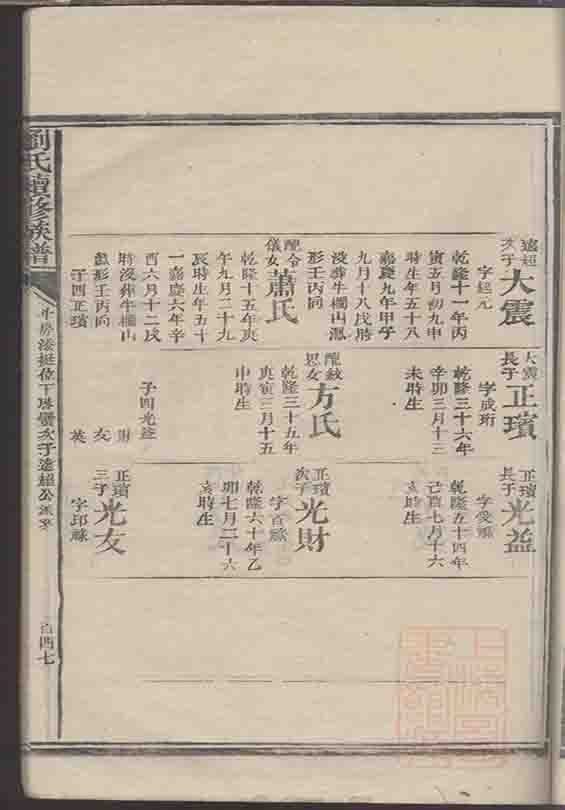 劉氏續修族譜
次子遠紹公派
四七
遠紹
次子
大震
字起元
乾隆十一年丙
寅五月初九申
時生年五十八
嘉慶九年甲子
九月十八戌時
沒葬牛欄山
形壬丙向
配
儀女
蕭氏
乾隆十五年庚
午九月二十九
辰時生年五十
一嘉慶六年辛
酉六月十二戌
時沒葬牛欄山
戲形壬丙向
子四正璸
大震
長子
正璸
字成珩
乾隆三十六年
辛卯三月十三
未時生
配
恩女
方氏
乾隆三十五年
庚寅三月十五
申時生
子四光益
財
友
英
正璸
長子
光益
乾隆五十四年
己酉七月十六
亥時生
正璸
次子
光財
乾隆六十年乙
卯七月二十六
亥時生
正璸
三子
光友
字印祿